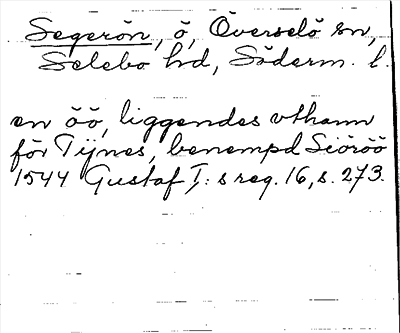 Segerön, ö, Överselö sn,
Selebo hd, Söderm. l.
en öö, liggendes vthann
för Tijnes, benempd Siöröö
1544 Gustaf I:s reg. 16, s. 273.